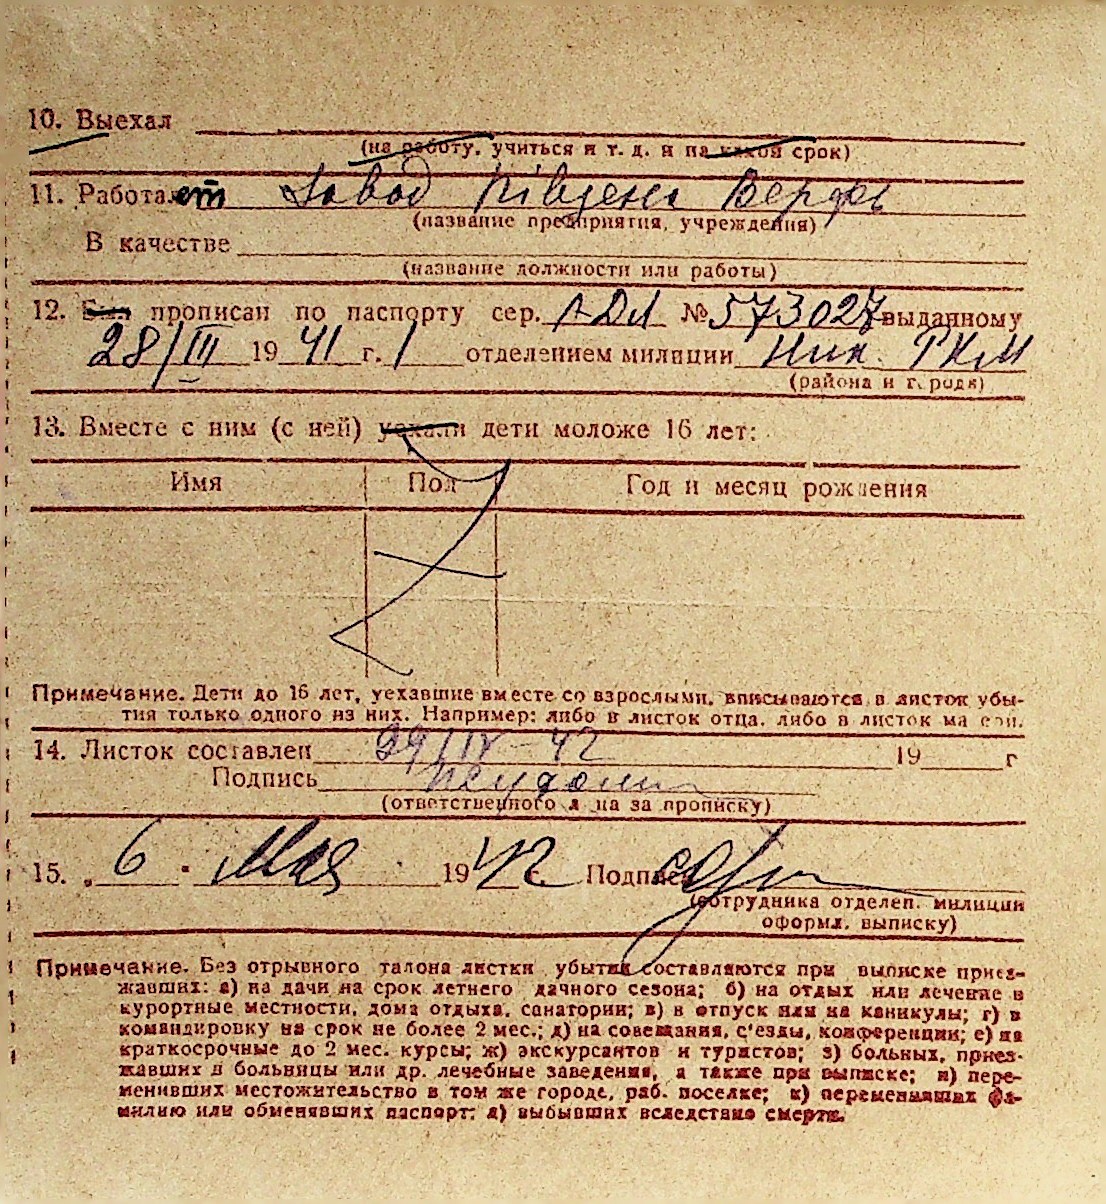 10. Выехал
(на работу, учиться и т. д. и на какой срок)
11. Работает Завод Південа Верфь
(название предприятия, учреждения)
В качестве
(название должности или работы)
12. Был прописан по паспорту сер. № 573027 выданному
28/III 1941 г. 1 отделением милиции Ник. ГКМ
(района и города)
13. Вместе с ним (с ней) уехали дети моложе 16 лет:
Имя Пол Год и месяц рождения
Примечание. Дети до 16 лет, уехавшие вместе со взрослыми, вписываются в листок убы-
тия только одного из них. Например: либо в листок отца, либо в листок матери.
14. Листок составлен 29/IV-42 19 г
Подпись
(ответственного лица за прописку)
15. „ 6 " Мая 1942 г. Подпись
(сотрудника отделен. милиции
оформл. выписку)
Примечание. Без отрывного талона листки убытия составляются при выписке приез-
жавших: а) на дачи на срок летнего дачного сезона; б) на отдых или лечение в
курортные местности, дома отдыха, санатории; в) в отпуск или на каникулы; г) в
командировку на срок не более 2 мес.; д) на совещания, с'езды, конференции; е) на
краткосрочные до 2 мес. курсы; ж) экскурсантов и туристов; з) больных, приез-
жавших в больницы или др. лечебные заведения, а также при выписке; и) пере-
менивших местожительство в том же городе, раб. поселке; к) переменивших фа-
милию или обменявших паспорт; л) выбывших вследствие смерти.